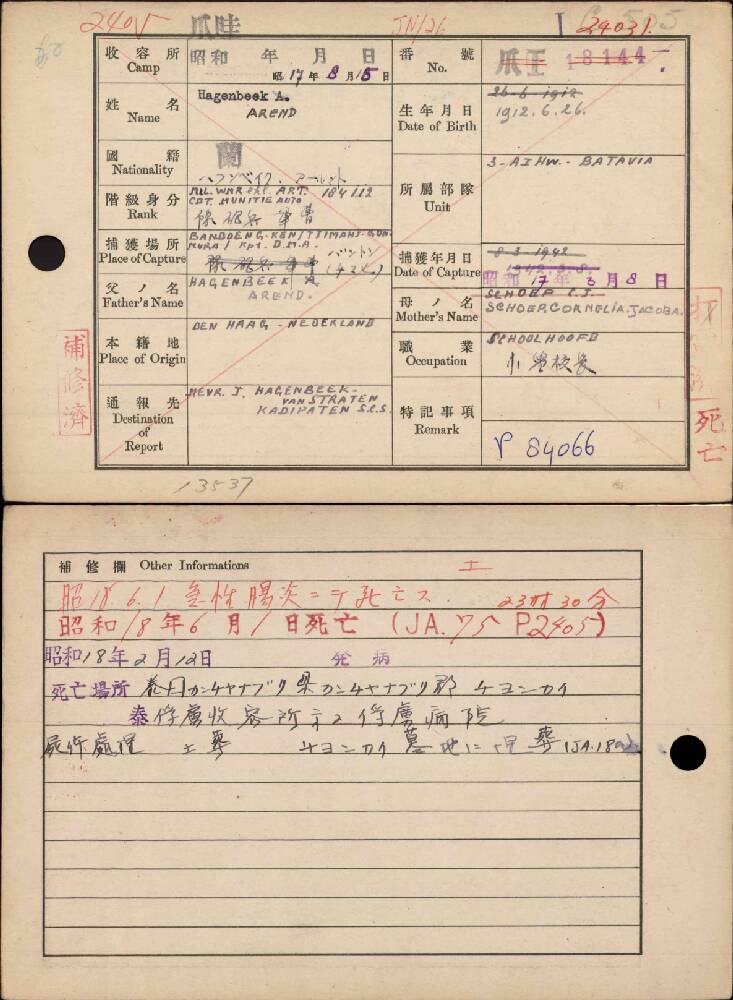 2405 爪哇 JN/26 I 24031
收容所 Camp 昭和 年 月 日
昭 17 年 8 月 15 日
番號 No. 爪 18144
姓名 Name Hagenbeek A.
AREND
生年月日 Date of Birth 26-6-1912
1912.6.26.
國籍 Nationality 蘭
ヘフンベイク. アーレント
所屬部隊 Unit 3-AIHW.- BATAVIA
階級身分 Rank MIL. WNR ART. 184112
CDT. MUNITIE AUTO
軍曹
捕獲場所 Place of Capture BANDOENG-KEN/TJIMAHI-GUN
MURA / Kpt. D.M.A.
バンドン
捕獲年月日 Date of Capture 8-3-1942
1942.3.8.
昭和 17 年 3 月 8 日
父ノ名 Father's Name HAGENBEEK A
AREND.
母ノ名 Mother's Name SCHOEP C.J.
SCHOEP, CORNELIA. JACOBA.
本籍地 Place of Origin DEN HAAG - NEDERLAND
職業 Occupation SCHOOLHOOFD
小學校長
通報先 Destination of Report MEVR. J. HAGENBEEK-
VAN STRATEN
KADIPATEN S.C.S.
特記事項 Remark P 84066
補修濟
死亡
13537
補修欄 Other Informations 土
昭18.6.1 急性腸炎ニテ死亡ス 23時30分
昭和18年6月1日死亡 (JA.75 P2405)
昭和18年2月12日 発病
死亡場所 泰国カンチヤナブリ県カンチヤナブリ郡 チヨンカイ
泰俘虜收容所第2俘虜病院
屍体處理 土葬 チヨンカイ 墓地に埋葬 (JA.18